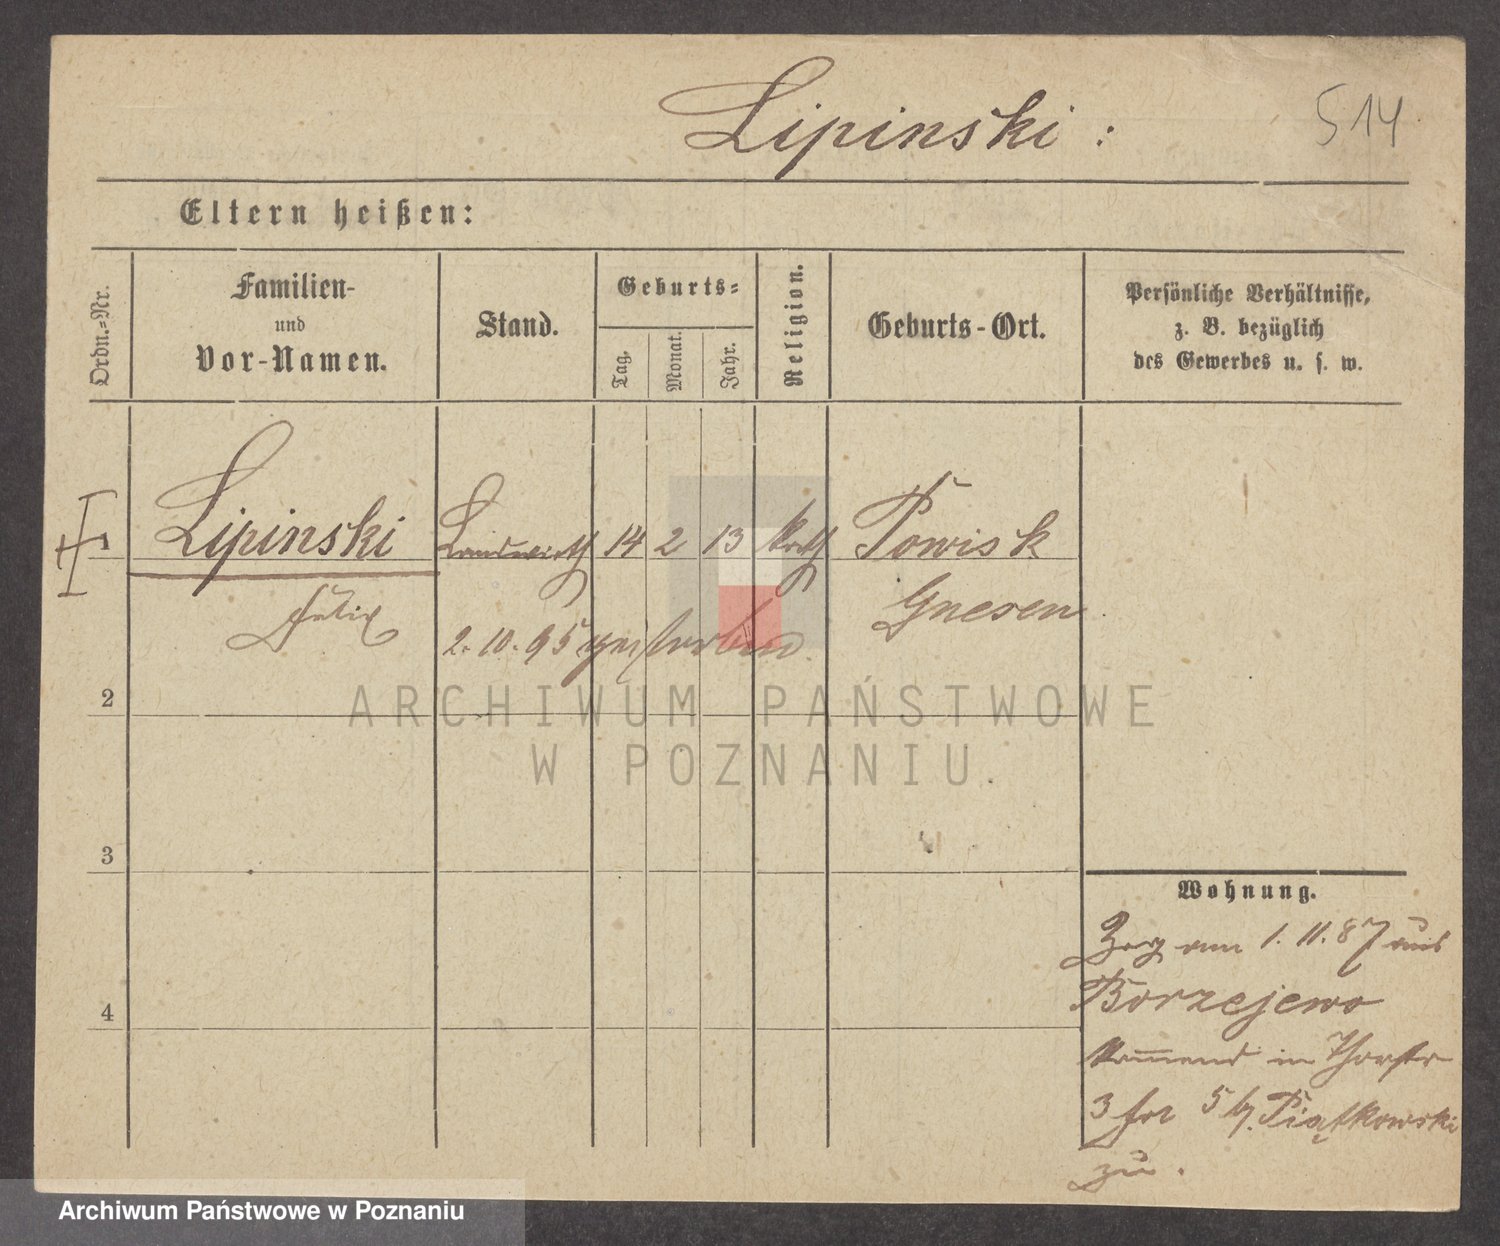 Lipinski :
514
Eltern heißen:
Ordn.=Nr.
Familien-
und
Vor-Namen.
Stand.
Geburts=
Tag.
Monat.
Jahr.
Religion.
Geburts-Ort.
Persönliche Verhältnisse,
z. B. bezüglich
des Gewerbes u. s. w.
1 Lipinski Landwirth 14 2 13 kath Powisk
Felix Gnesen
2. 10. 95 gestorben
2
3
4
Wohnung.
Zog am 1. 11. 87 aus
Borzejewo
kommend in Thorstr
3 fr 5 b/ Piątkowski
zu.
ARCHIWUM PAŃSTWOWE
W POZNANIU
Archiwum Państwowe w Poznaniu